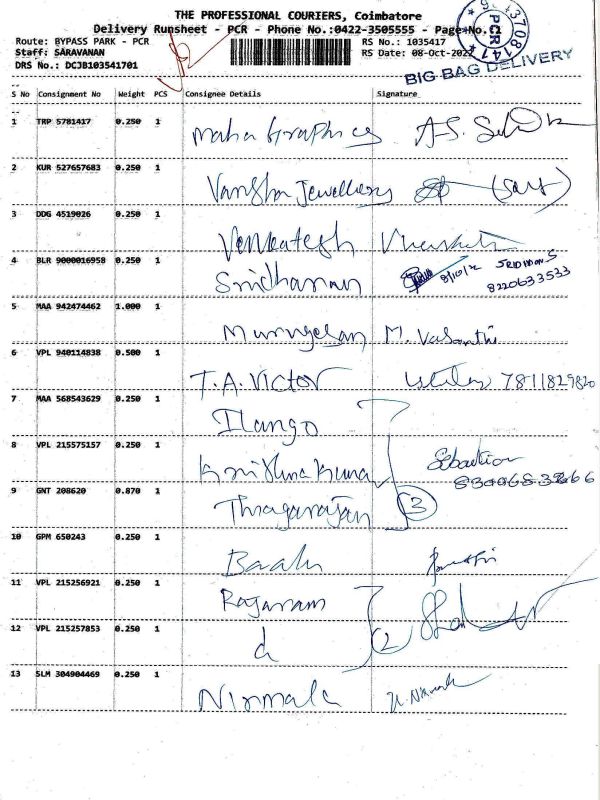 THE PROFESSIONAL COURIERS, Coimbatore
Delivery Runsheet - PCR - Phone No.:0422-3505555 - Page No.:1
Route: BYPASS PARK - PCR RS No.: 1035417
Staff: SARAVANAN RS Date: 08-Oct-2022
DRS No.: DCJB103541701
PCR
BIG BAG DELIVERY
S No Consignment No Weight PCS Consignee Details Signature
1 TRP 5781417 0.250 1 Maha Graphics
2 KUR 527657683 0.250 1 Vansha Jewellery
3 DDG 4519026 0.250 1 Venkatesh
4 BLR 9000016958 0.250 1 Sridharan 8/10/2 SRIDHAN S
8220633533
5 MAA 942474462 1.000 1 Murugesan M. Vasanthi
6 VPL 940114838 0.500 1 T.A. Victor 7811829820
7 MAA 568543629 0.250 1 Ilango
8 VPL 215575157 0.250 1 Krishna Kumar Sebastian
9 GNT 208620 0.870 1 Thiagarajan 3
10 GPM 650243 0.250 1 Baalu
11 VPL 215256921 0.250 1 Rajaram
12 VPL 215257853 0.250 1 d 2
13 SLM 304904469 0.250 1 Nirmala